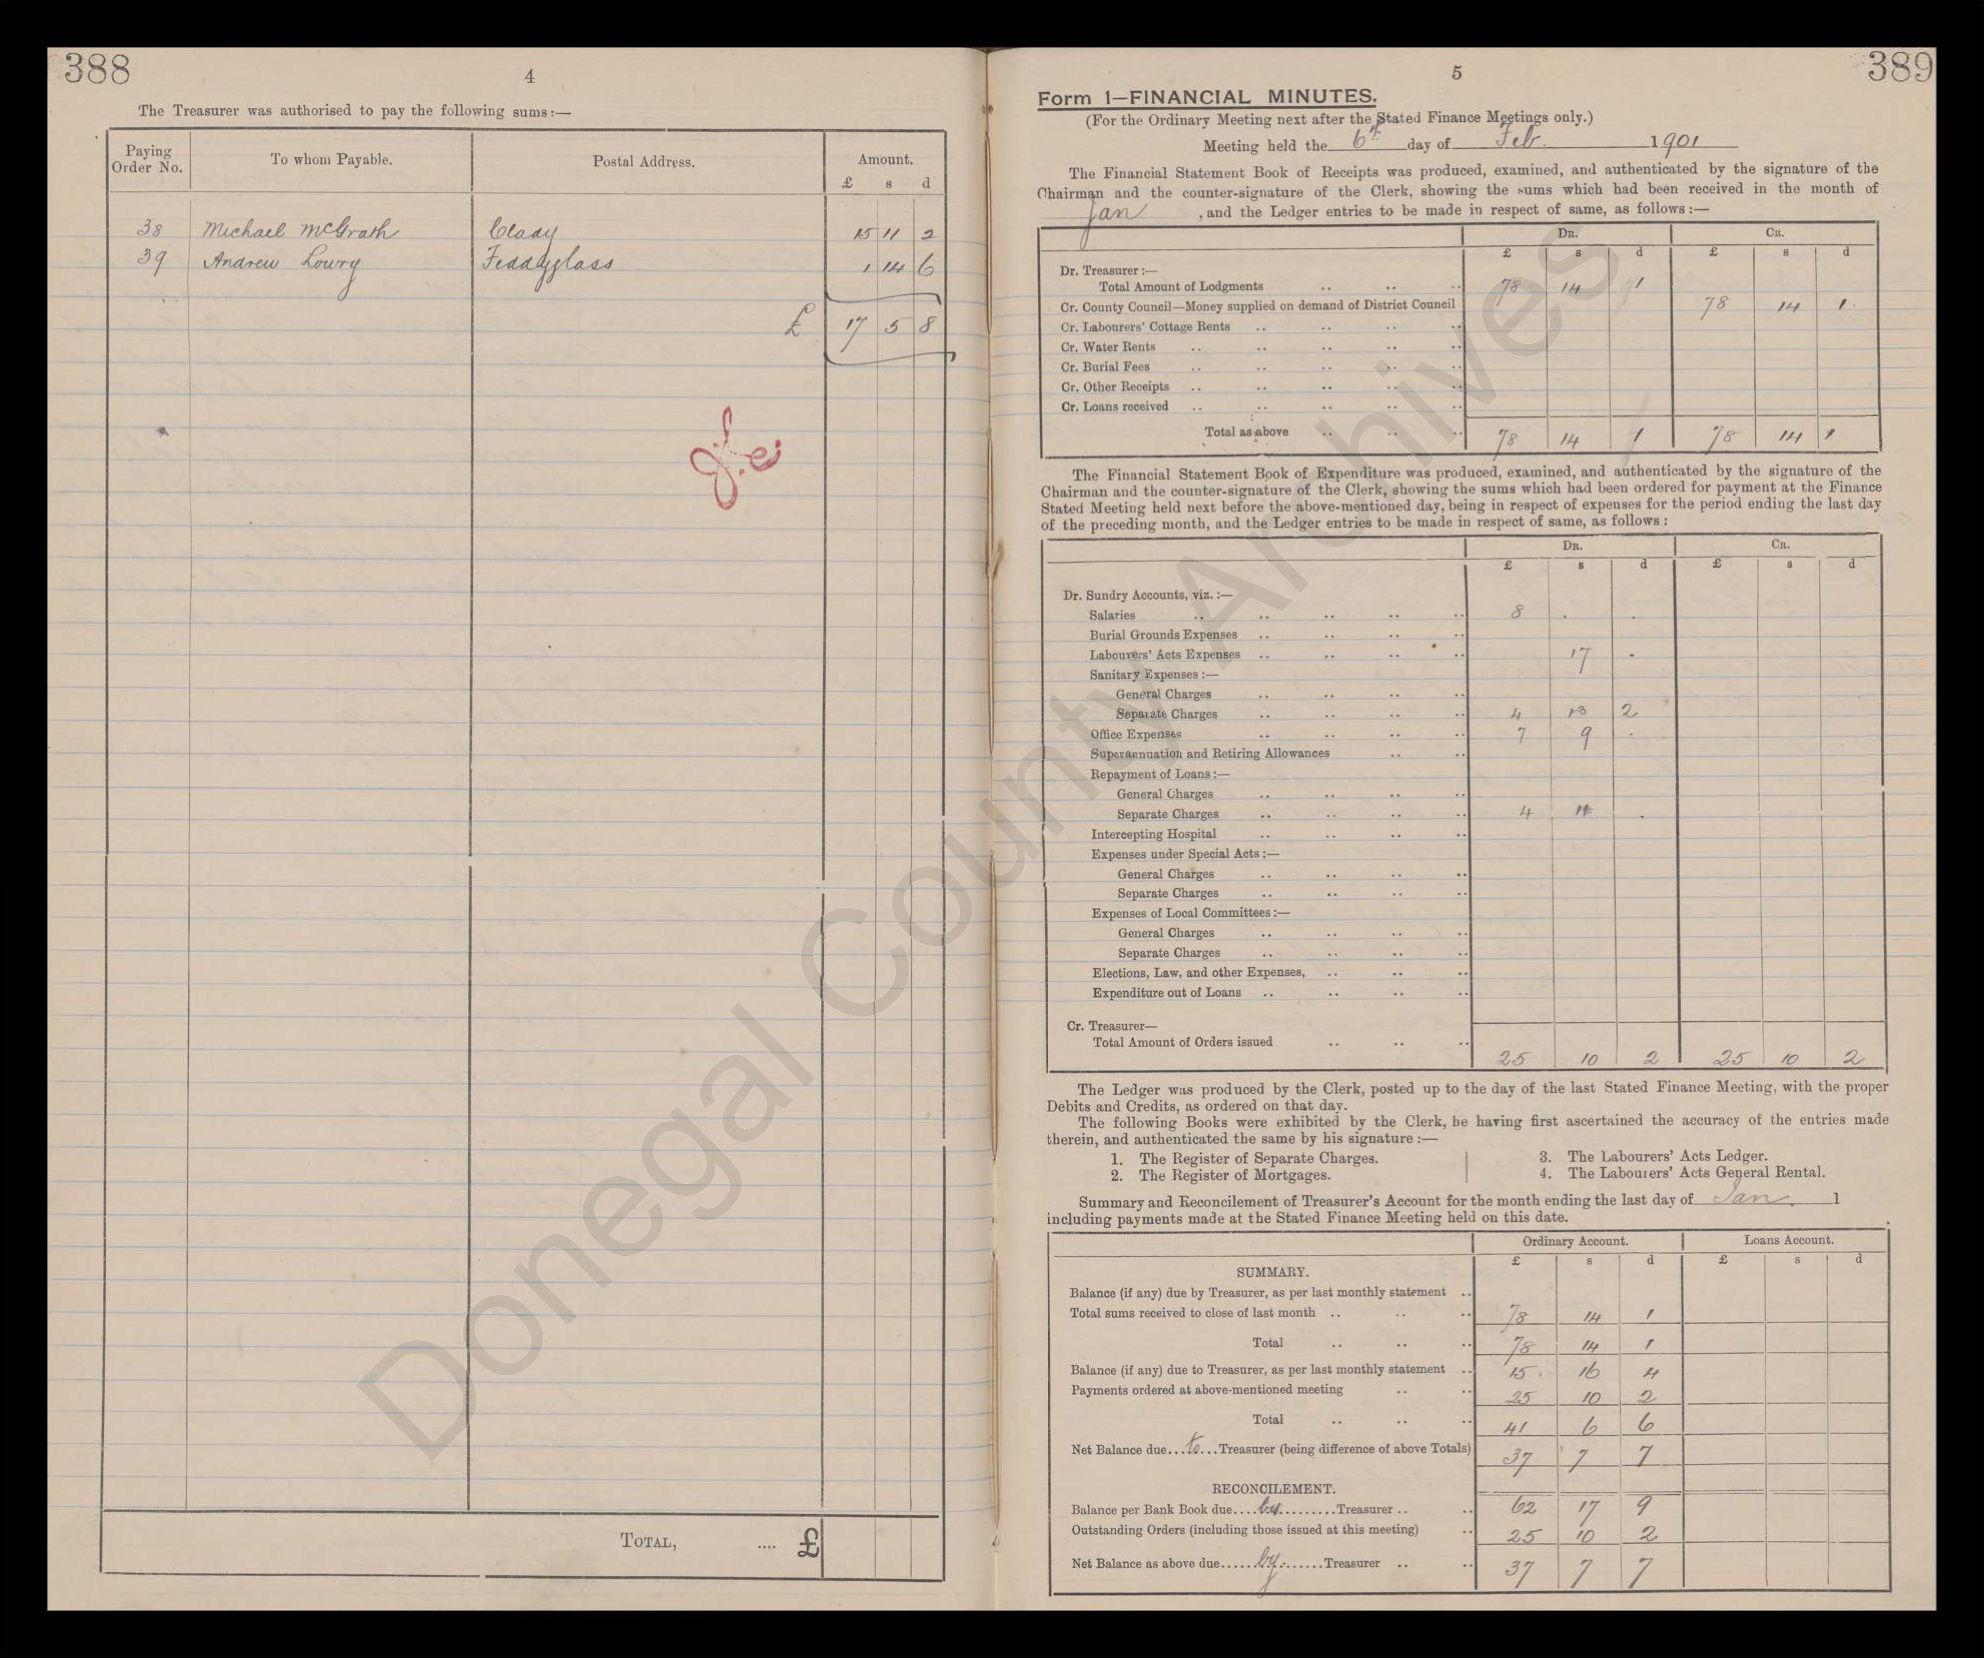 388
4
The Treasurer was authorised to pay the following sums:—
Paying Order No. To whom Payable. Postal Address. Amount.
£ s d
38 Michael McGrath Clady 15 11 2
39 Andrew Lowry Feddyglass 1 14 6
£ 17 5 8
TOTAL, .... £
389
5
Form 1—FINANCIAL MINUTES.
(For the Ordinary Meeting next after the Stated Finance Meetings only.)
Meeting held the 6th day of Feb. 1901
The Financial Statement Book of Receipts was produced, examined, and authenticated by the signature of the
Chairman and the counter-signature of the Clerk, showing the sums which had been received in the month of
Jan, and the Ledger entries to be made in respect of same, as follows:—
DR. CR.
£ s d £ s d
Dr. Treasurer:—
Total Amount of Lodgments .. .. .. 78 14 1
Cr. County Council—Money supplied on demand of District Council 78 14 1
Cr. Labourers' Cottage Rents .. .. .. ..
Cr. Water Rents .. .. .. .. ..
Cr. Burial Fees .. .. .. .. ..
Cr. Other Receipts .. .. .. .. ..
Cr. Loans received .. .. .. .. ..
Total as above .. .. .. 78 14 1 78 14 1
The Financial Statement Book of Expenditure was produced, examined, and authenticated by the signature of the
Chairman and the counter-signature of the Clerk, showing the sums which had been ordered for payment at the Finance
Stated Meeting held next before the above-mentioned day, being in respect of expenses for the period ending the last day
of the preceding month, and the Ledger entries to be made in respect of same, as follows:
DR. CR.
£ s d £ s d
Dr. Sundry Accounts, viz.:—
Salaries .. .. .. .. .. 8 . .
Burial Grounds Expenses .. .. .. ..
Labourers' Acts Expenses .. .. .. .. 17 .
Sanitary Expenses:—
General Charges .. .. .. ..
Separate Charges .. .. .. .. 4 13 2
Office Expenses .. .. .. .. 7 9 .
Superannuation and Retiring Allowances .. ..
Repayment of Loans:—
General Charges .. .. .. ..
Separate Charges .. .. .. .. 4 11 .
Intercepting Hospital .. .. .. ..
Expenses under Special Acts:—
General Charges .. .. .. ..
Separate Charges .. .. .. ..
Expenses of Local Committees:—
General Charges .. .. .. ..
Separate Charges .. .. .. ..
Elections, Law, and other Expenses, .. .. ..
Expenditure out of Loans .. .. .. ..
Cr. Treasurer—
Total Amount of Orders issued .. .. .. 25 10 2 25 10 2
The Ledger was produced by the Clerk, posted up to the day of the last Stated Finance Meeting, with the proper
Debits and Credits, as ordered on that day.
The following Books were exhibited by the Clerk, he having first ascertained the accuracy of the entries made
therein, and authenticated the same by his signature:—
1. The Register of Separate Charges. 3. The Labourers' Acts Ledger.
2. The Register of Mortgages. 4. The Labourers' Acts General Rental.
Summary and Reconcilement of Treasurer's Account for the month ending the last day of Jan. 1
including payments made at the Stated Finance Meeting held on this date.
Ordinary Account. Loans Account.
£ s d £ s d
SUMMARY.
Balance (if any) due by Treasurer, as per last monthly statement ..
Total sums received to close of last month .. .. .. 78 14 1
Total .. .. .. 78 14 1
Balance (if any) due to Treasurer, as per last monthly statement .. 15 16 4
Payments ordered at above-mentioned meeting .. .. 25 10 2
Total .. .. .. 41 6 6
Net Balance due...to...Treasurer (being difference of above Totals) 37 7 7
RECONCILEMENT.
Balance per Bank Book due....by.........Treasurer .. .. 62 17 9
Outstanding Orders (including those issued at this meeting) .. 25 10 2
Net Balance as above due.....by.......Treasurer .. .. 37 7 7
Donegal County Archives